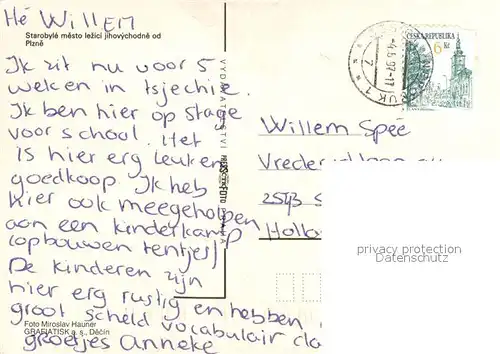 Hé Willem
Starobylé město ležící jihovýchodně od
Plzně
Ik zit nu voor 5
weken in tsjechie.
Ik ben hier op stage
voor school. Het
is hier erg leuk en
goedkoop. Ik heb
hier ook meegeholpen
aan een kinderkamp
(opbouwen tentjes)
De kinderen zijn
hier erg rustig en hebben
groot scheld vocabulair
groetjes Anneke
Foto Miroslav Hauner
GRAFIATISK a. s., Děčín
VYDAVATELSTVÍ
PRAHA
ČESKÁ REPUBLIKA
6 Kč
Willem Speé
2543
privacy protection
Dumnsafe.com